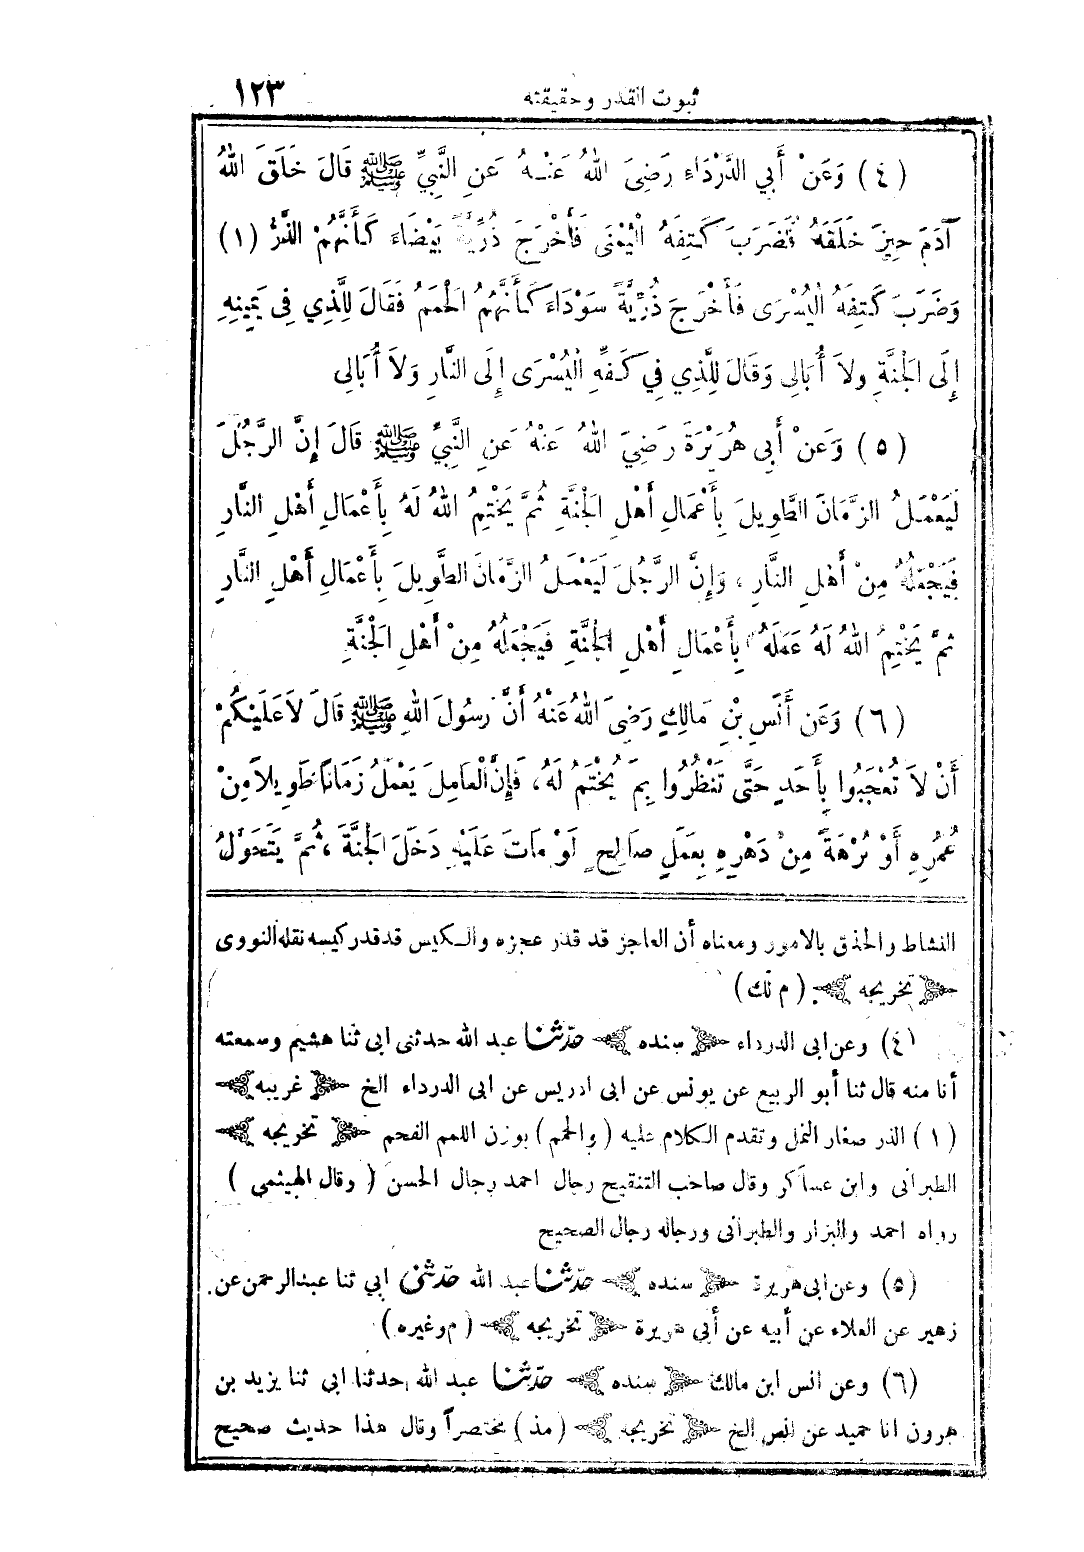 ثبوت القدر وحقيقته ١٢٣
(٤) وَعَنْ أَبِي الدَّرْدَاءِ رَضِىَ اللهُ عَنْهُ عَنِ النَّبِيِّ ﷺ قَالَ خَلَقَ اللهُ
آدَمَ حِينَ خَلَقَهُ فَضَرَبَ كَتِفَهُ الْيُمْنَى فَأَخْرَجَ ذُرِّيَّةً بَيْضَاءَ كَأَنَّهُمْ الذَّرُّ (١)
وَضَرَبَ كَتِفَهُ الْيُسْرَى فَأَخْرَجَ ذُرِّيَّةً سَوْدَاءَ كَأَنَّهُمُ الْحُمَمُ فَقَالَ لِلَّذِي فِى يَمِينِهِ
إِلَى الْجَنَّةِ وَلاَ أُبَالِى وَقَالَ لِلَّذِي فِي كَفِّهِ الْيُسْرَى إِلَى النَّارِ وَلاَ أُبَالِى
(٥) وَعَنْ أَبِى هُرَيْرَةَ رَضِيَ اللهُ عَنْهُ عَنِ النَّبِيِّ ﷺ قَالَ إِنَّ الرَّجُلَ
لَيَعْمَلُ الزَّمَانَ الطَّوِيلَ بِأَعْمَالِ أَهْلِ الْجَنَّةِ ثُمَّ يَخْتِمُ اللهُ لَهُ بِأَعْمَالِ أَهْلِ النَّارِ
فَيَجْعَلُهُ مِنْ أَهْلِ النَّارِ ، وَإِنَّ الرَّجُلَ لَيَعْمَلُ الزَّمَانَ الطَّوِيلَ بِأَعْمَالِ أَهْلِ النَّارِ
ثُمَّ يَخْتِمُ اللهُ لَهُ عَمَلَهُ بِأَعْمَالِ أَهْلِ الْجَنَّةِ فَيَجْعَلُهُ مِنْ أَهْلِ الْجَنَّةِ
(٦) وَعَن أَنَسِ بْنِ مَالِكٍ رَضِىَ اللهُ عَنْهُ أَنَّ رَسُولَ اللهِ ﷺ قَالَ لاَعَلَيْكُمْ
أَنْ لاَ تُعْجَبُوا بِأَحَدٍ حَتَّى تَنْظُرُوا بِمَ يُخْتَمُ لَهُ، فَإِنَّ الْعَامِلَ يَعْمَلُ زَمَانًا طَوِيلاً مِنْ
عُمُرِهِ أَوْ بُرْهَةً مِنْ دَهْرِهِ بِعَمَلٍ صَالِحٍ لَوْ مَاتَ عَلَيْهِ دَخَلَ الْجَنَّةَ ، ثُمَّ يَتَحَوَّلُ
النشاط والحذق بالامور ومعناه أن العاجز قد قدر عجزه والكيس قد قدر كيسه نقله النووى
﴿تخريجه﴾ (م لك)
(٤) وعن ابى الدرداء ﴿سنده﴾ حدّثنا عبد الله حدثنى ابى ثنا هشيم وسمعته
أنا منه قال ثنا أبو الربيع عن يونس عن ابى ادريس عن ابى الدرداء الخ ﴿غريبه﴾
(١) الذر صغار النمل وتقدم الكلام عليه (والحمم) بوزن اللمم الفحم ﴿تخريجه﴾
الطبرانى وابن عساكر وقال صاحب التنقيح رجال احمد رجال الحسن (وقال الهيثمى)
رواه احمد والبزار والطبرانى ورجاله رجال الصحيح
(٥) وعن ابى هريرة ﴿سنده﴾ حدّثنا عبد الله حدّثنى ابي ثنا عبد الرحمن عن
زهير عن العلاء عن أبيه عن أبي هريرة ﴿تخريجه﴾ (م وغيره)
(٦) وعن انس ابن مالك ﴿سنده﴾ حدّثنا عبد الله حدثنا ابى ثنا يزيد بن
هرون انا حميد عن انس الخ ﴿تخريجه﴾ (مذ) مختصراً وقال هذا حديث صحيح